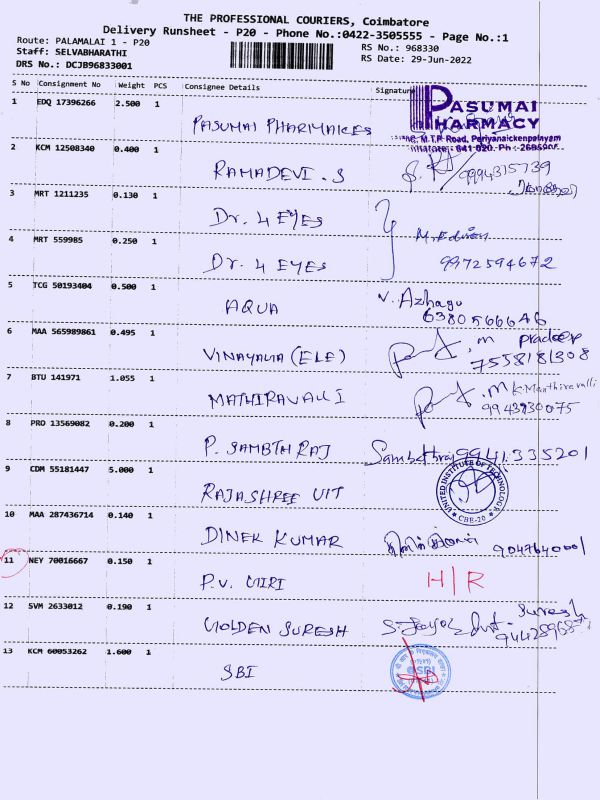 THE PROFESSIONAL COURIERS, Coimbatore
Delivery Runsheet - P20 - Phone No.:0422-3505555 - Page No.:1
Route: PALAMALAI 1 - P20
Staff: SELVABHARATHI
DRS No.: DCJB96833001
RS No.: 968330
RS Date: 29-Jun-2022
S No Consignment No Weight PCS Consignee Details Signature
1 EDQ 17396266 2.500 1 PASUMAI PHARMAICES
PASUMAI
PHARMACY
M.T.P. Road, Periyanaickenpalayam
2 KCM 12508340 0.400 1 RAMADEVI.S 9994315739
3 MRT 1211235 0.130 1 Dr. 4 EYES
4 MRT 559985 0.250 1 Dr. 4 EYES 9972594672
5 TCG 50193404 0.500 1 AQUA V. Azhagu
6380566646
6 MAA 565989861 0.495 1 VINAYAGA (ELE) M pradeep
7558181308
7 BTU 141971 1.055 1 MATHIRAVALLI K. Manthiravalli
9943930075
8 PRO 13569082 0.200 1 P. SAMBTH RAJ Sambathraj 9941335201
9 CDM 55181447 5.000 1 RAJASHREE UIT
UNITED INSTITUTE OF TECHNOLOGY
CBE-20
10 MAA 287436714 0.140 1 DINEK KUMAR 9047640001
11 NEY 70016667 0.150 1 P.V. GIRI H|R
12 SVM 2633012 0.190 1 GOLDEN SURESH Suresh
13 KCM 60053262 1.600 1 SBI
SBI